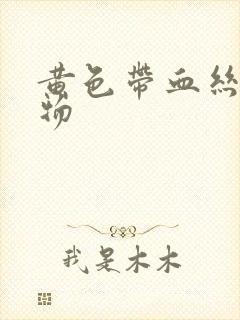 黄色帶血絲
物
我是木木